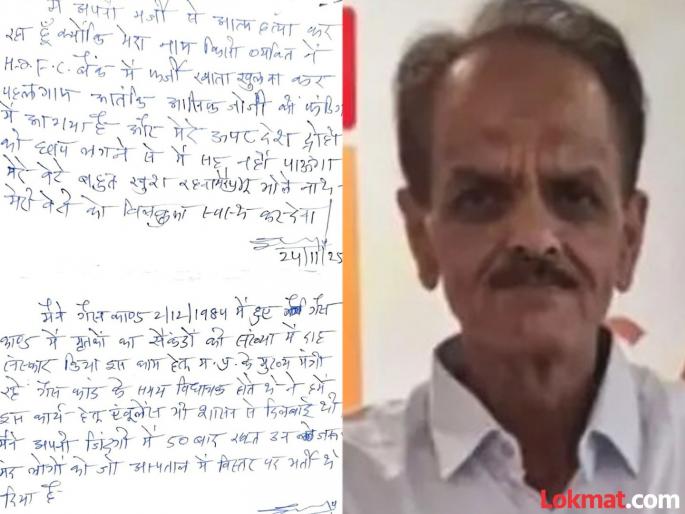 मैं अपनी मर्जी से आत्म हत्या कर
रहा हूँ क्योंकि मेरा नाम किसी व्यक्ति ने
H.D.F.C. बैंक में फर्जी खाता खुलवा कर
पहलगाम आतंकि आसिफ जोजी की फंडिंग
में आ गया है और मेरे ऊपर देश द्रोही
को लगने से में सह नहीं पाऊंगा
मेरे बेटे बहुत खुश रहना भोले नाथ
मेरी बेटी को बिलकुल स्वास्थ कर देना।
24/11/25
मैंने गैस काण्ड 2/12/1984 में हुए गैस
काण्ड में मृतकों का सैकंडों की संख्या में दाह
संस्कार किया इस काम हेतु म.प्र. के मुख्य मंत्री
रहे गैस कांड के समय विधायक होते थे ने हमें
इस कार्य हेतु एंबूलेंस भी शासन से दिलवाई थी
मैंने अपनी जिंदगी में 50 बार रक्त उन
मंद लोगों को जो अस्पताल में बिस्तर पर भर्ती थे
दिया है-
Lokmat.com